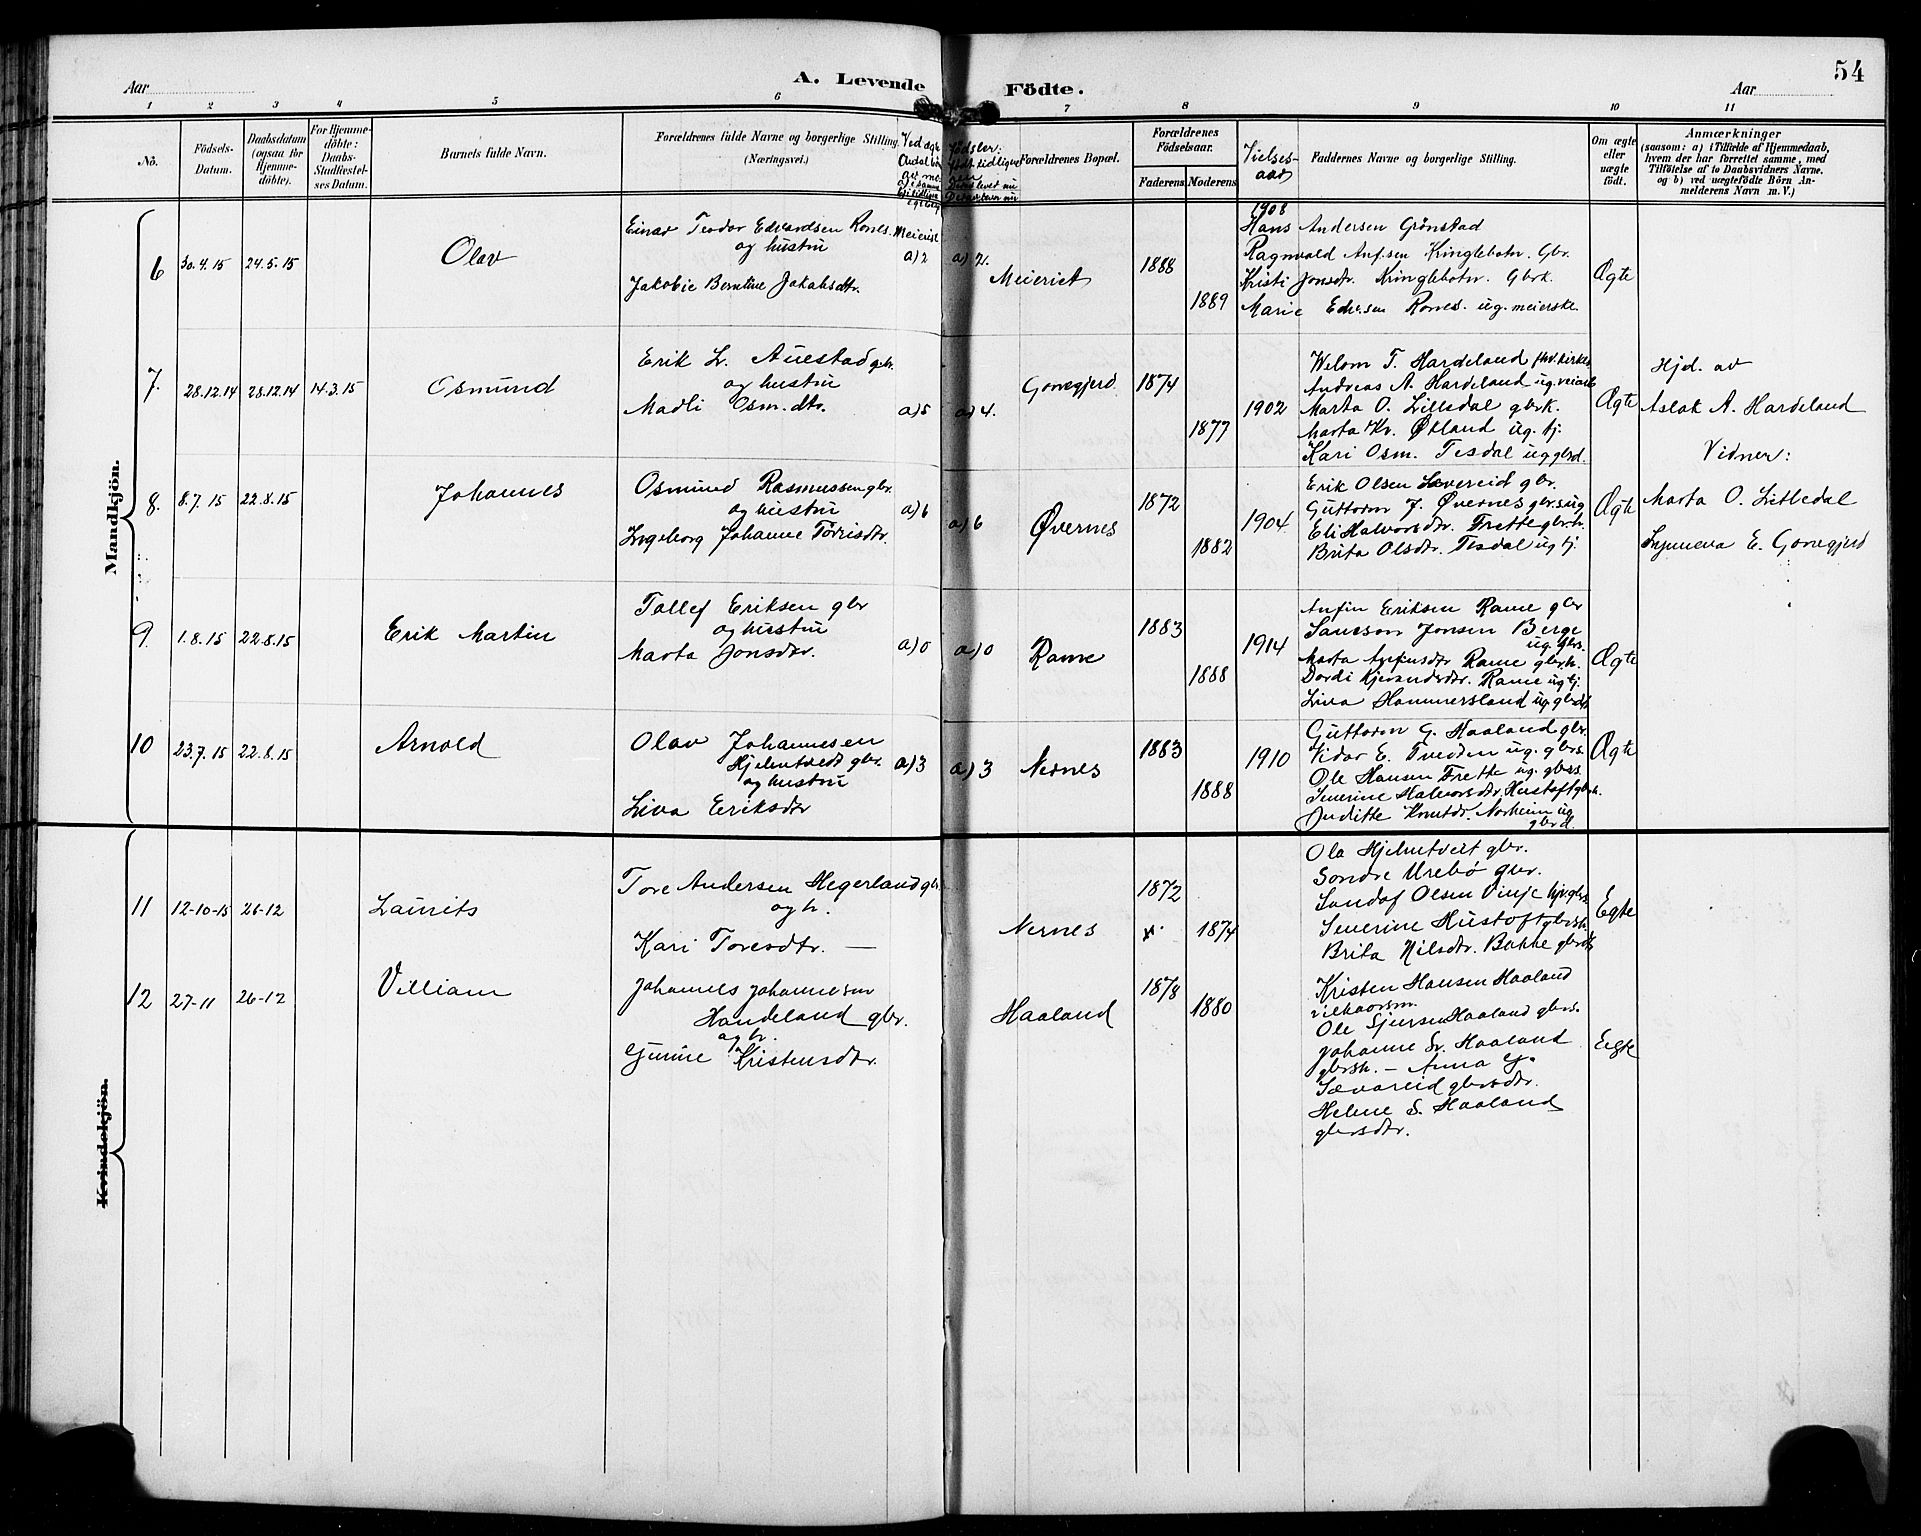 54
Aar
A. Levende
Födte.
Aar
1 2 3 4 5 6 7 8 9 10 11
No.
Födsels-
Datum.
Daabsdatum
(ogsaa for
Hjemme-
döbte).
For Hjemme-
döbte:
Daabs-
Stadfæstel-
ses Datum.
Barnets fulde Navn.
Forældrenes fulde Navne og borgerlige Stilling
(Næringsvei.)
Forældrenes Bopæl.
Forældrenes
Födselsaar.
Faderens
Moderens
Vielses-
aar
Faddernes Navne og borgerlige Stilling.
Om ægte
eller
uægte
født.
Anmærkninger
(saasom: a) i Tilfælde af Hjemmedaab,
hvem der har forrettet samme, med
Tilföielse af to Daabsvidners Navne.
og b) ved uægtefödte Börn An-
melderens Navn m. V.)
Mandkjön.
6
30.4.15
24.5.15
Olav
Einar Teodor Edvardsen Rones. Meierist
og hustru
Jakobie Berntine Jakobsdtr.
a) 2
a) 2.
Meieriet
1888
1889
1908
Hans Andersen Grönstad
Ragnvald Anfsen Kringlebotn. Gbr.
Kristi Jonsdtr. Kringlebotn. Gbrk.
Marie Edv.sen Rones. ug. meierske.
Ægte
7.
28.12.14
28.12.14
14.3.15
Osmund
Erik L. Auestad gbr.
og hustru
Madli Osm.dtr.
a) 5
a) 4.
Gonegjerd
1874
1877
1902
T. Hardeland
Andreas A. Hardeland ug.
Marta O. Lillsdal gbrk.
Marta Kr. Økland ug. tj.
Kari Osm. Tesdal ug gbrd.
Ægte
Hjd. av
Aslak A. Hardeland
Vidner:
Marta O. Litledal
E. Gonegjerd
8.
8.7.15
22.8.15
Johannes
Osmund Rasmussen gbr.
og hustru
Ingeborg Johanne Torrisdtr.
a) 6
a) 6
Øvernes
1872
1882
1904
Erik Olsen Sævereid gbr.
Guttorm J. Øvernes gbrs.ug
Eli Halvorsdtr. Frette gbrh.
Brita Olsdtr. Tesdal ug tj.
Ægte
9.
1.8.15
22.8.15
Erik Martin
Tollef Eriksen gbr
og hustru
Marta Jonsdtr.
a) 0
a) 0
Rame
1883
1888
1914
Anfin Eriksen Rame gbr
Samson Jonsen Berge
ug. gbrs.
Marta Anfinsdtr Rame gbrh.
Dordi Rame ug tj.
Liva Hammersland ug gbrdt
Ægte
10
23.7.15
22.8.15
Arnold
Olav Johannesen
Hjelmtvedt gbr.
og hustru
Liva Eriksdtr
a) 3
a) 3
Nernes
1883
1888
1910
Guttorm G. Haaland gbr.
Vidar E. Tveden ug. gbrs.
Ole Hansen Frette ug. gbrs.
Severine Halvorsdtr. Hustoft gbrh.
Juditte Knutdr. Norheim ug
gbrd.
Ægte
Kvindekjön.
11
12-10-15
26-12
Laurits
Tore Andersen Hegerland gbr.
og h.
Kari Toresdtr. —
Nernes
1872
1874
Ola Hjelmtveit gbr.
Sondre Urebø gbr.
Sandof Olsen Vinje
Severine Hustoft gbrsh.
Brita Nilsdtr. Bakke gbrdtr
Egte
12
27-11
26-12
Villiam
Johannes Johannesen
Handeland gbr.
og h.
Gurine Kristensdtr.
Haaland
1878
1880
Kristen Hansen Haaland
vilkaarsm.
Ole Sjursen Haaland gbrs.
Johanne Sr. Haaland
gbrsh. — Anna G.
Sævareid gbrsdtr.
Helene S. Haaland
gbrsdtr.
Egte